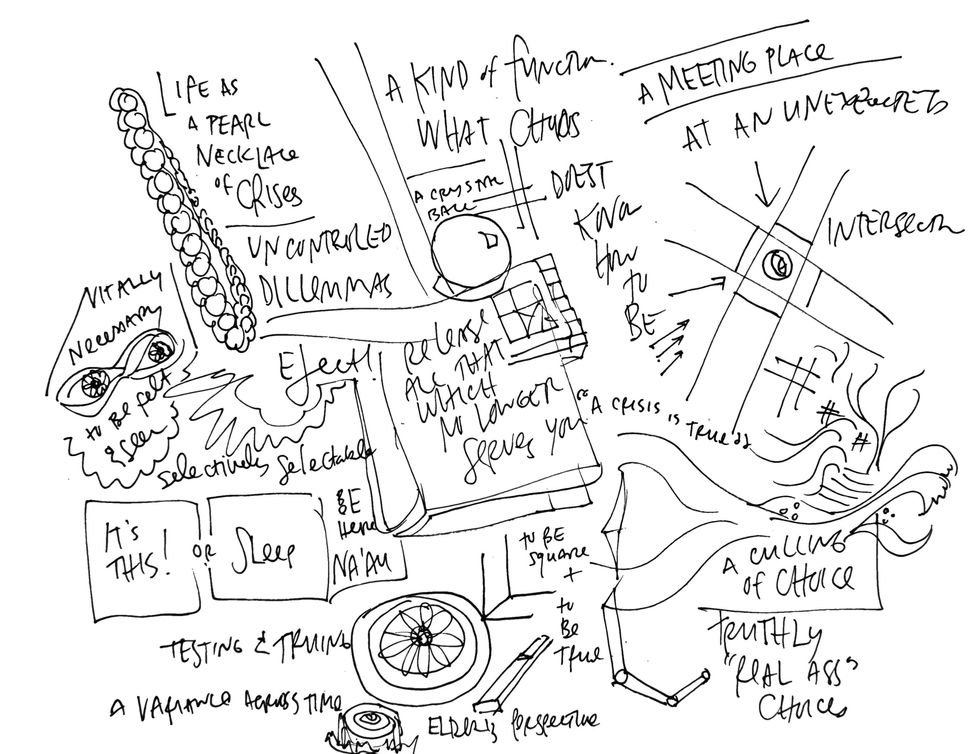 LIFE AS
A PEARL
NECKLACE
OF CRISES
UNCONTROLLED
DILLEMMAS
A KIND of function.
WHAT CHAOS
A CRYSTAL
BALL
DOEST
KNOW
HOW
TO
BE
A MEETING PLACE
AT AN UNEXPECTED
INTERSECTION
VITALLY
NECESSARY
to BE felt
& seen
Eject!!
Selectively Selectable
Release
All THAT
WHICH
NO LONGER
Serves you
"A CRISIS IS TRUE"
#
#
#
IT'S
THIS!
OR
Sleep
BE
Here
NA'AU
to BE
Square
+
to
Be
True
A CULLING
OF CHOICE
TRUTHLY
"REAL ASS"
CHOICES
TESTING & TRUING
A VARIANCE ACROSS TIME
perspective